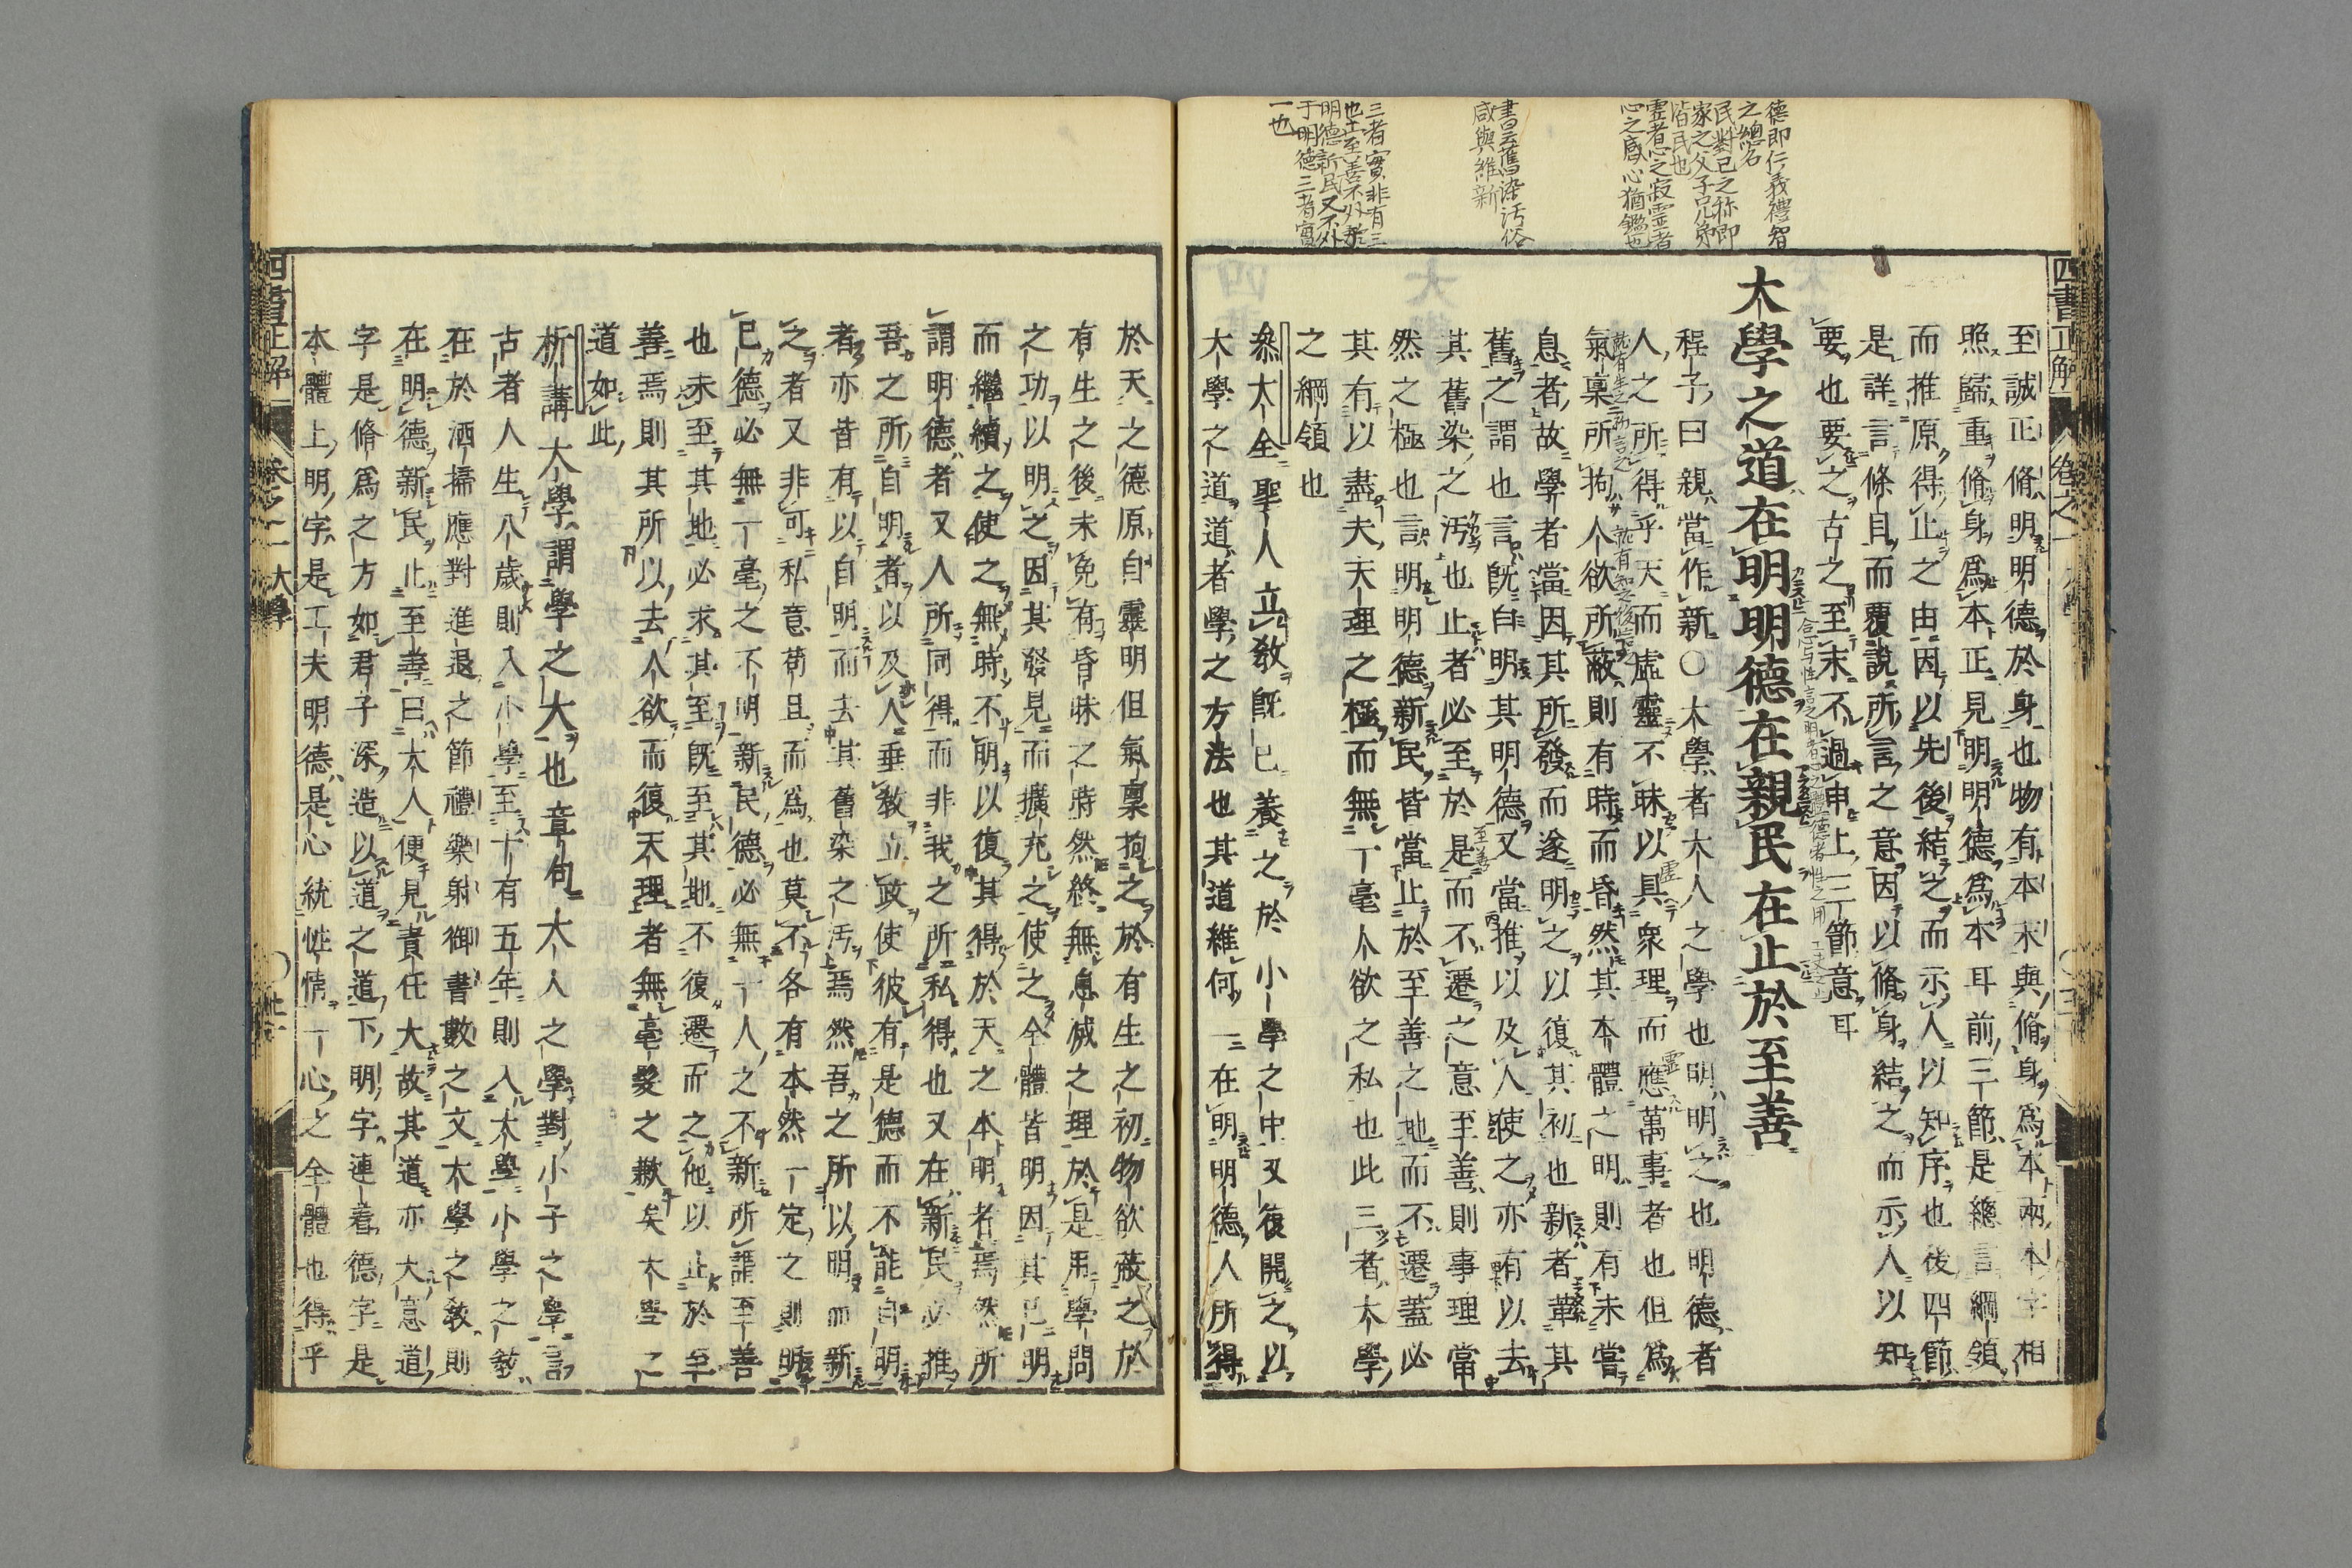 德即仁義禮智
之總名
民對己之称即
家之父子兄弟
皆民也
灵者心之寂霊者
心之感心猶鑑也
書云舊染汚俗
咸與維新
三者實非有三
也止至善不外乎
明德新民又不外
于明德三者實
一也
四書正解
卷之一
至誠正脩明明德於身也物有本末與脩身爲本兩本字相
照歸重脩身爲本正見明明德爲本耳前三節是總言綱領
而推原得止之由因以先後結之而示人以知序也後四節
是詳言條目而覆說所言之意因以脩身結之而示人以知
要也要之古之至末不過申上三節意耳
大學之道在明明德在親民在止於至善
程子曰親當作新○大學者大人之學也明明之也明德者
人之所得乎天而虛靈不昧以具衆理而應萬事者也但爲
氣稟所拘人欲所蔽則有時而昏然其本體之明則有未嘗
息者故學者當因其所發而遂明之以復其初也新者革其
舊之謂也言旣自明其明德又當推以及人使之亦有以去
其舊染之汚也止者必至於是而不遷之意至善則事理當
然之極也言明明德新民皆當止於至善之地而不遷蓋必
其有以盡夫天理之極而無一毫人欲之私也此三者大學
之綱領也
叅大全聖人立敎旣已養之於小學之中又復開之以
大學之道道者學之方法也其道維何一在明明德人所得
於天之德原自靈明但氣稟拘之於有生之初物欲蔽之於
有生之後未免有昏昧之時然終無息滅之理於是用學問
之功以明之因其發見而擴充之使之全體皆明因其已明
而繼續之使之無時不明以復其得於天之本明者焉然所
謂明德者又人所同得而非我之所私得也又在新民必推
吾之所自明者以及人垂敎立政使彼有是德而不能自明
者亦皆有以自明而去其舊染之汚焉然吾之所以明而新
之者又非可私意苟且而爲也莫不各有本然一定之則明
已德必無一毫之不明新民德必無一人之不新所謂至善
也未至其地必求其至旣至其地不復遷而之他以止於至
善焉則其所以去人欲而復天理者無毫髮之歉矣大學之
道如此
析講大學謂學之大也章句大人之學對小子之學言
古者人生八歲則入小學至十有五年則入大學小學之敎
在於洒掃應對進退之節禮樂射御書數之文大學之敎則
在明德新民止至善曰大人便見責任大故其道亦大意道
字是脩爲之方如君子深造以道之道下明字連着德字是
本體上明字是工夫明德是心統性情一心之全體也得乎
四書正解
卷之一 大學